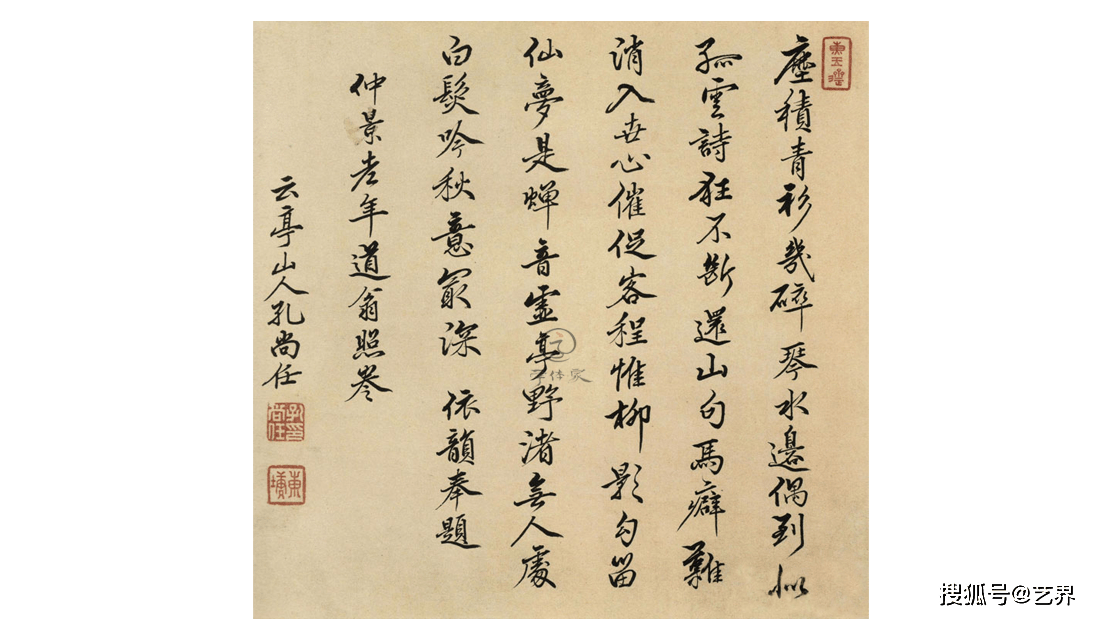 塵積青衫幾碎琴水邊偶到似
孤雲詩狂不斷還山句馬癖難
消入世心催促客程惟柳影勾留
仙夢是蟬音虛亭野渚無人處
白髮吟秋意最深 依韻奉題
仲景老年道翁照
云亭山人孔尚任
孔尚任印
東塘
搜狐号@艺界